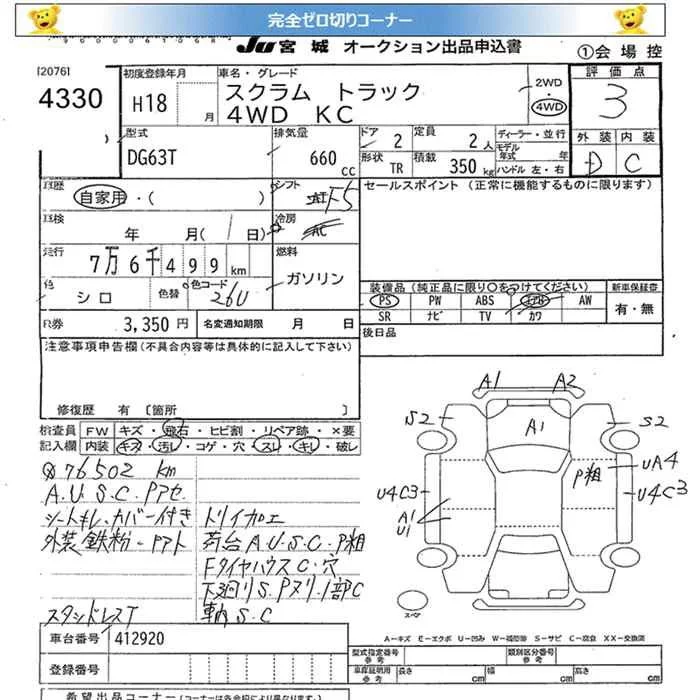 完全ゼロ切りコーナー
JU宮城 オークション出品申込書
①会場控
[2076]
4330
初度登録年月
H18 月
車名・グレード
スクラム トラック
4WD KC
2WD
・
4WD
評価点
3
外装 内装
D C
型式
DG63T
排気量
660 cc
ドア 2
定員 2人
形状 TR
積載 350 kg
ディーラー・並行
モデル年式 年
ハンドル 左・右
車歴
自家用・( )
シフト
AT F5
車検
年 月( 1日)
冷房
AC
走行
7万6千499 km
燃料
ガソリン
色
シロ
色替
色コード
26U
R券 3,350円
名変通知期限 月 日
セールスポイント (正常に機能するものに限ります)
装備品 (純正品に限り○をつけてください)
新車保証書
PS PW ABS エアB AW
SR ナビ TV カワ
有・無
後日品
注意事項申告欄(不具合内容等は具体的に記入して下さい)
修復歴 有 〔箇所 〕
検査員記入欄
FW キズ・飛石・ヒビ割・リペア跡・×要
内装 キズ・汚レ・コゲ・穴・スレ・キレ・破レ
76502 km
A.U.S.C.Pアセ
シートキレ、カバー付き
外装鉄粉・Pアト
スタッドレスT
トリイ加工
荷台A.U.S.C.P粗
FタイヤハウスC.穴
下廻りS.Pヌリ.1部C
軸S.C
A1 A2
S2 A1 S2
P粗 UA4
U4C3 U4C3
A1
U1
スペア
A-キズ E-エクボ U-凹み W-補修跡 S-サビ C-腐食 XX-交換済
車台番号 412920
登録番号
型式指定番号 参考
類別区分番号 参考
車庫証明用 参考
長さ cm 幅 cm 高さ cm
希望出品コーナー